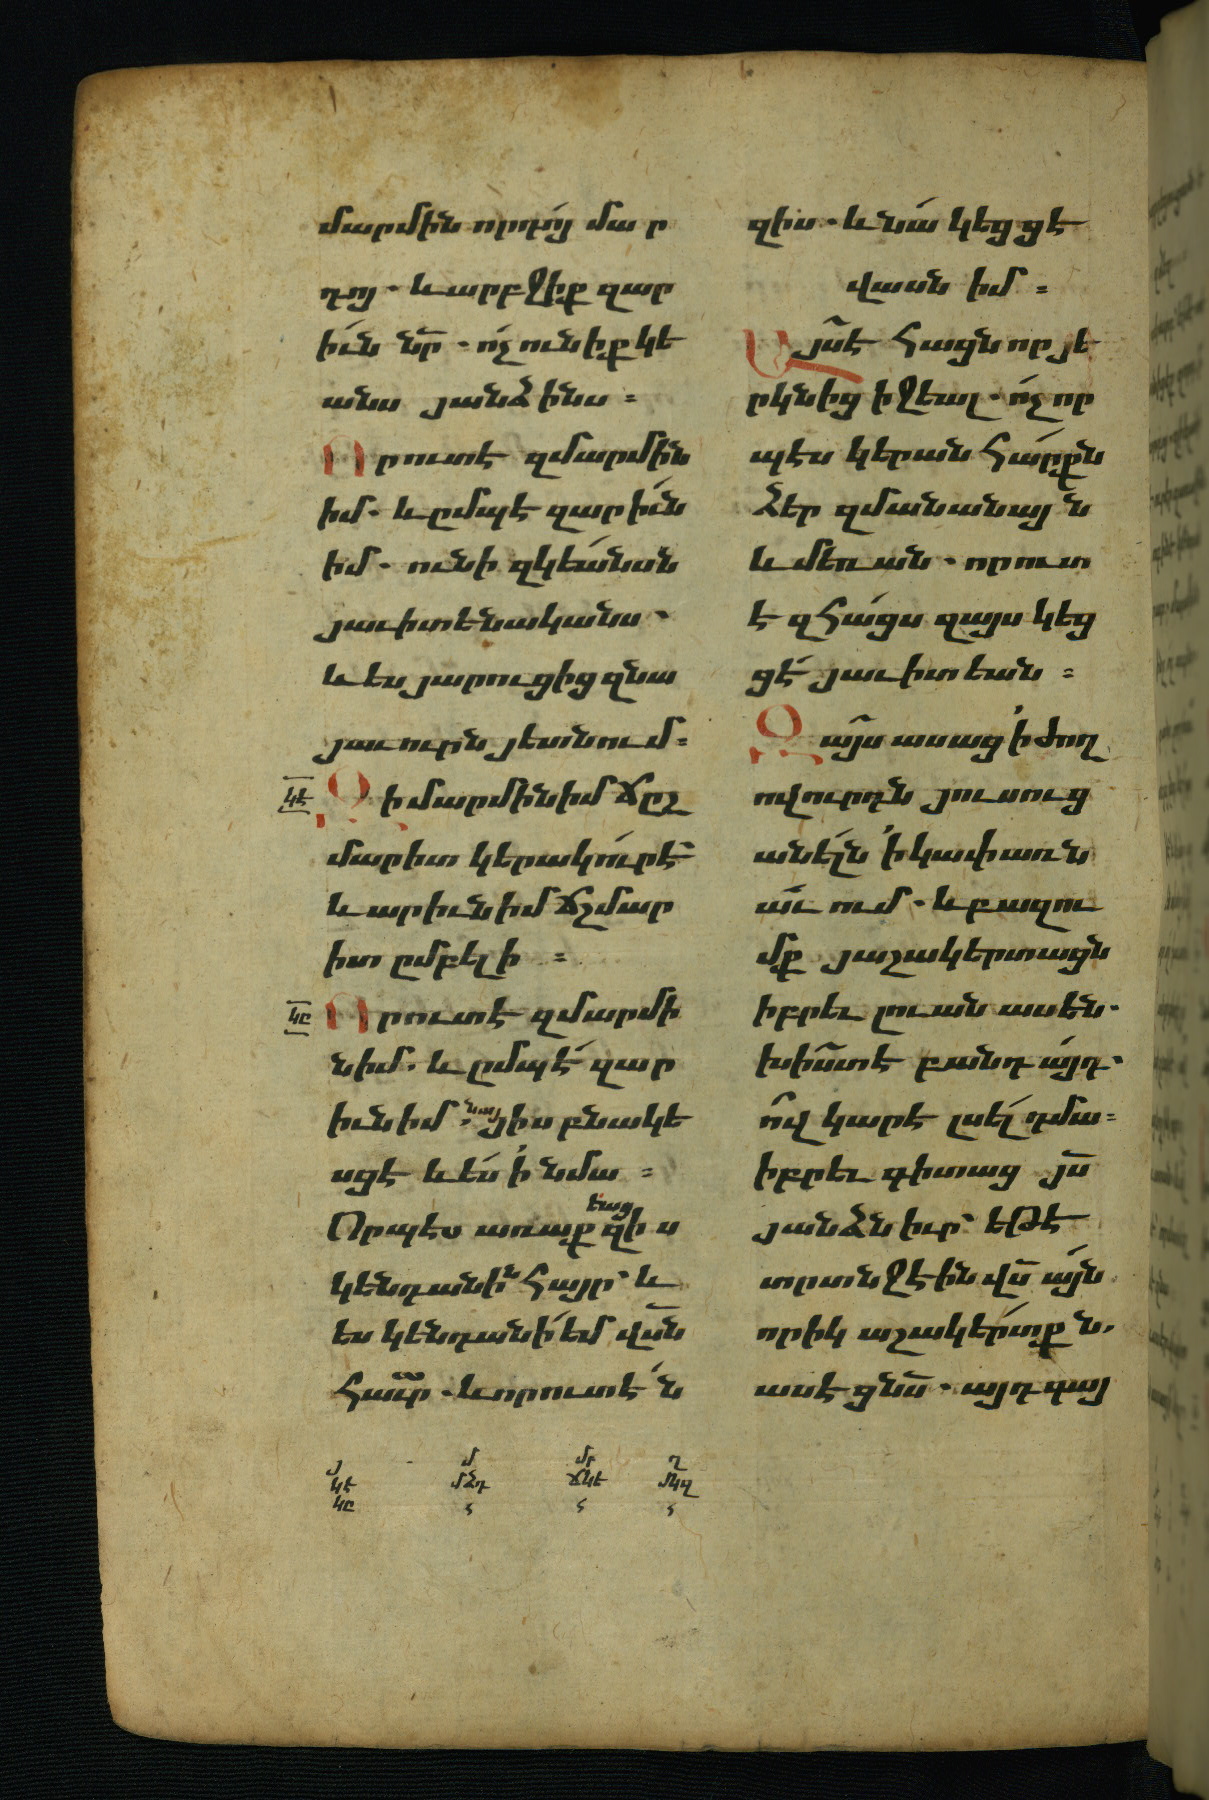 մարմին որդոյ մար
դոյ. և արբջիք զար
իւն նր̄. ոչ ունիք կե
անս յանձինս։
Որ ուտէ զմարմին
իմ. և ըմպէ զարիւն
իմ. ունի զկեանսն
յաւիտենականս.
և ես յարուցից զնա
յաւուրն յետնում։
կէ
Զի մարմին իմ ճըշ
մարիտ կերակուր է՝
և արիւն իմ ճշմար
իտ ըմբելի։
կը
Որ ուտէ զմարմի
ն իմ. և ըմպէ զար
իւն իմ, նայ յիս բնակե
սցէ և ես ի նմա։
Որպէս առաքեաց զիս
կենդանին հայր՝ և
ես կենդանի եմ վս̄ն
հաւր. և որ ուտէն
զիս. և նա կեցցէ
վասն իմ։
Այս է հացն որ յե
րկնից իջեալ. ոչ որ
պէս կերան հարքն
ձեր զմանանայն
և մեռան. որ ուտ
է զհացս զայս կեց
ցէ յաւիտեան։
Զայս ասաց ի ժող
ովուրդն յուսուց
անելն ի կափառն
աւում. և բազու
մք յաշակերտացն
իբրեւ լուան ասեն.
խիստ է բանդ այդ.
ով կարէ լսել դմա։
իբրեւ գիտաց յս̄
յանձն իւր՝ եթէ
տրտնջէին վս̄ այն
որիկ աշակերտքն,
ասէ ցնս̄. այդ գայ
յ մ մր ղ
կէ մձդ ճկէ մկզ
կը